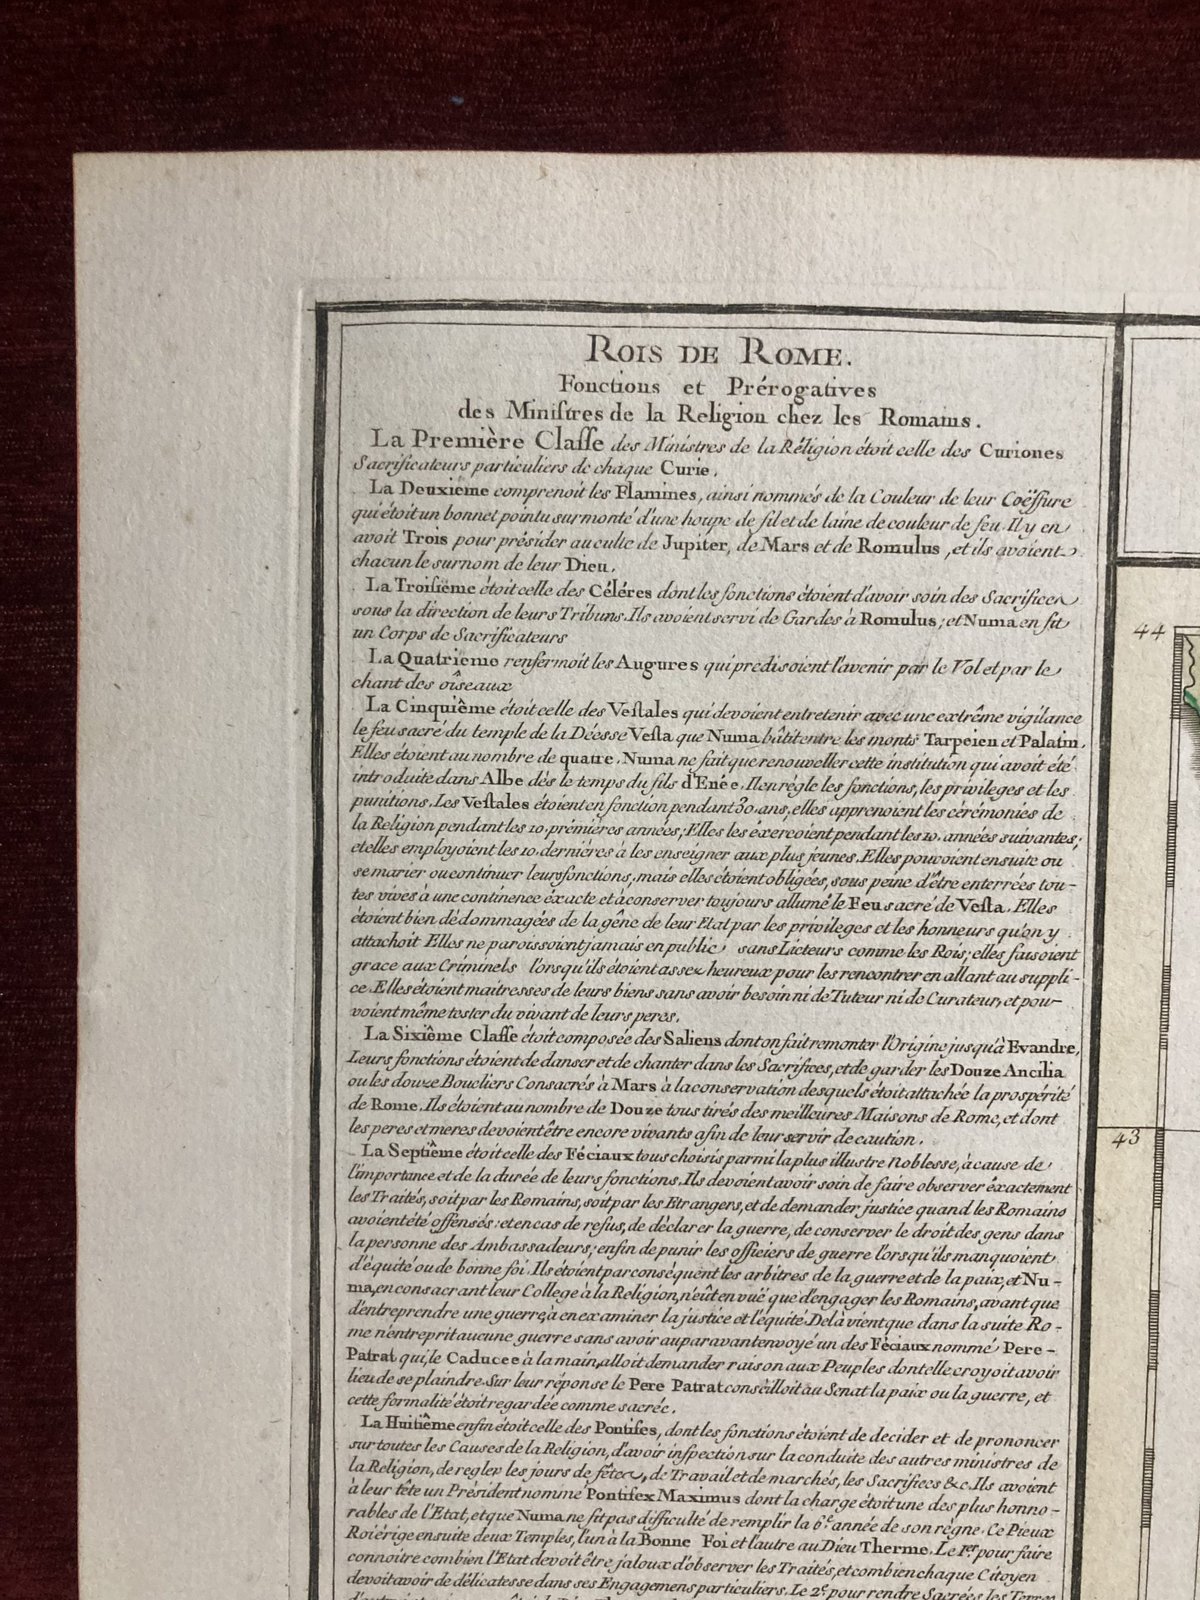 ROIS DE ROME.
Fonctions et Prérogatives
des Miniſtres de la Religion chez les Romains.
La Première Claſſe des Ministres de la Réligion étoit celle des Curiones
Sacrificateurs particuliers de chaque Curie.
La Deuxiême comprenoit les Flamines, ainsi nommés de la Couleur de leur Coëſſure
qui étoit un bonnet pointu surmonté d'une houpe de fil et de laine de couleur de feu. Il y en
avoit Trois pour présider au culte de Jupiter, de Mars et de Romulus, et ils avoient
chacun le surnom de leur Dieu.
La Troiſiême étoit celle des Céléres dont les fonctions étoient d'avoir soin des Sacrifices
sous la direction de leurs Tribuns. Ils avoient servi de Gardes à Romulus; et Numa en fit
un Corps de Sacrificateurs
La Quatrieme renfermoit les Augures qui predisoient l'avenir par le Vol et par le
chant des oîseaux
La Cinquiême étoit celle des Veſtales qui devoient entretenir avec une extrême vigilance
le feu sacré du temple de la Déesse Veſta que Numa bâtit entre les monts Tarpeien et Palatin.
Elles étoient au nombre de quatre. Numa ne fait que renouveller cette institution qui avoit été
introduite dans Albe dès le temps du fils d'Enée. Il en régle les fonctions, les privileges et les
punitions. Les Veſtales étoient en fonction pendant 30. ans, elles apprenoient les cérémonies de
la Religion pendant les 10. prémières années; Elles les éxercoient pendant les 10. années suivantes;
et elles employoient les 10. dernières à les enseigner aux plus jeunes. Elles pouvoient ensuite ou
se marier ou continuer leurs fonctions, mais elles étoient obligées, sous peine d'être enterrées tou-
tes vives à une continence éxacte et à conserver toujours allumé le Feu sacré de Veſta. Elles
étoient bien dédommagées de la gêne de leur Etat par les privileges et les honneurs qu'on y
attachoit Elles ne paroissoient jamais en public, sans Licteurs comme les Rois; elles faisoient
grace aux Criminels l'orsqu'ils étoient assex heureux pour les rencontrer en allant au suppli-
ce. Elles étoient maitresses de leurs biens sans avoir besoin ni de Tuteur ni de Curateur, et pou-
voient même tester du vivant de leurs peres.
La Sixiême Claſſe étoit composée des Saliens dont on fait remonter l'Origine jusqu'à Evandre,
Leurs fonctions étoient de danser et de chanter dans les Sacrifices, et de garder les Douze Ancilia
ou les douze Boucliers Consacrés à Mars à la conservation desquels étoit attachée la prospérité
de Rome. Ils étoient au nombre de Douze tous tirés des meilleures Maisons de Rome, et dont
les peres et meres devoient être encore vivants afin de leur servir de caution.
La Septiême étoit celle des Féciaux tous choisis parmi la plus illustre Noblesse, à cause de
l'importance et de la durée de leurs fonctions. Ils devoient avoir soin de faire observer éxactement
les Traités, soit par les Romains, soit par les Etrangers, et de demander justice quand les Romains
avoient été offensés: et en cas de refus, de déclarer la guerre, de conserver le droit des gens dans
la personne des Ambassadeurs; enfin de punir les officiers de guerre l'orsqu'ils manquoient
d'équité ou de bonne foi. Ils étoient par conséquent les arbitres de la guerre et de la paix, et Nu-
ma, en consacrant leur College à la Religion, n'eût en vüë que d'engager les Romains, avant que
d'entreprendre une guerre, à en examiner la justice et l'équité. Delà vient que dans la suite Ro-
me n'entreprit aucune guerre sans avoir auparavant envoyé un des Féciaux nommé Pere-
Patrat qui, le Caducee à la main, alloit demander raison aux Peuples dont elle croyoit avoir
lieu de se plaindre. Sur leur réponse le Pere Patrat conséilloit au Senat la paix ou la guerre, et
cette formalité étoit regardée comme sacrée.
La Huitiême enfin étoit celle des Pontifes, dont les fonctions étoient de decider et de prononcer
sur toutes les Causes de la Religion, d'avoir inſpection sur la conduite des autres ministres de
la Religion, de regler les jours de fêtes, de Travail et de marchés, les Sacrifices &c. Ils avoient
à leur tête un Président nommé Pontifex Maximus dont la charge étoit une des plus honno-
rables de l'Etat, et que Numa ne fit pas difficulté de remplir la 6e. année de son règne. Ce Pieux
Roi érige ensuite deux Temples, l'un à la Bonne Foi et l'autre au Dieu Therme. Le 1er. pour faire
connoitre combien l'Etat devoit être jaloux d'observer les Traités, et combien chaque Citoyen
devoit avoir de délicatesse dans ses Engagemens particuliers. Le 2e. pour rendre Sacrées les Terres
44
43